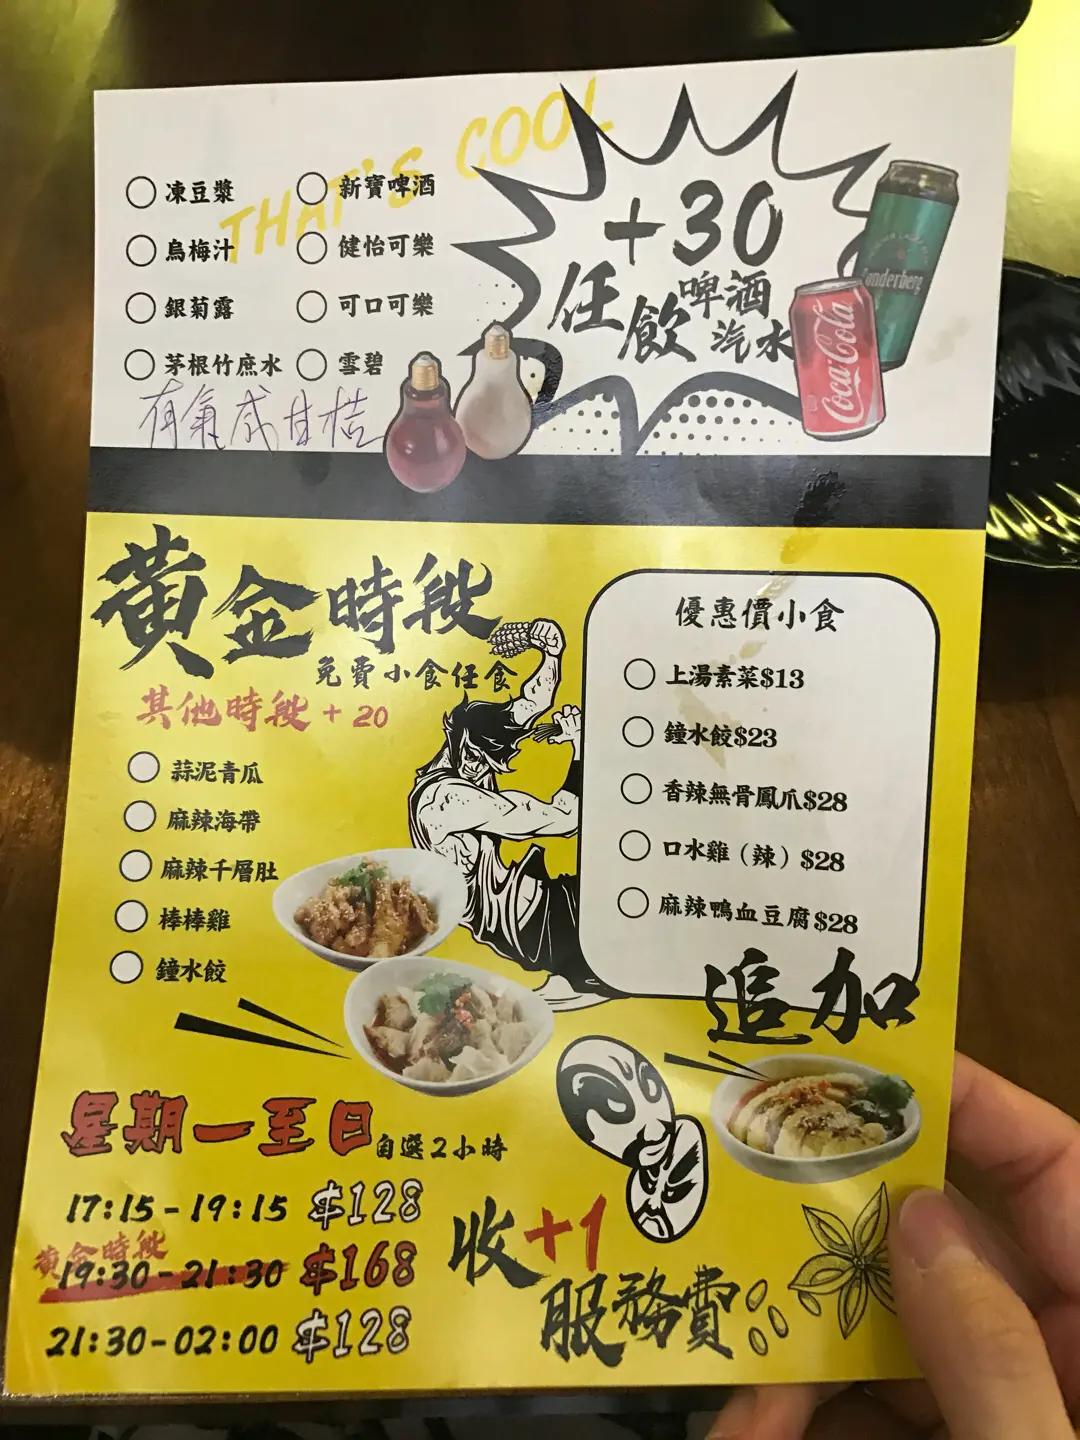 THAT'S COOL
凍豆漿
烏梅汁
銀菊露
茅根竹庶水
新寶啤酒
健怡可樂
可口可樂
雪碧
有氣咸甘桔
+30
任飲
啤酒
汽水
Coca-Cola
黃金時段
免費小食任食
其他時段 + 20
蒜泥青瓜
麻辣海帶
麻辣千層肚
棒棒雞
鐘水餃
優惠價小食
上湯素菜$13
鐘水餃$23
香辣無骨鳳爪$28
口水雞（辣）$28
麻辣鴨血豆腐$28
追加
星期一至日 自選2小時
17:15-19:15 $128
黃金時段
19:30-21:30 $168
21:30-02:00 $128
收+1
服務費